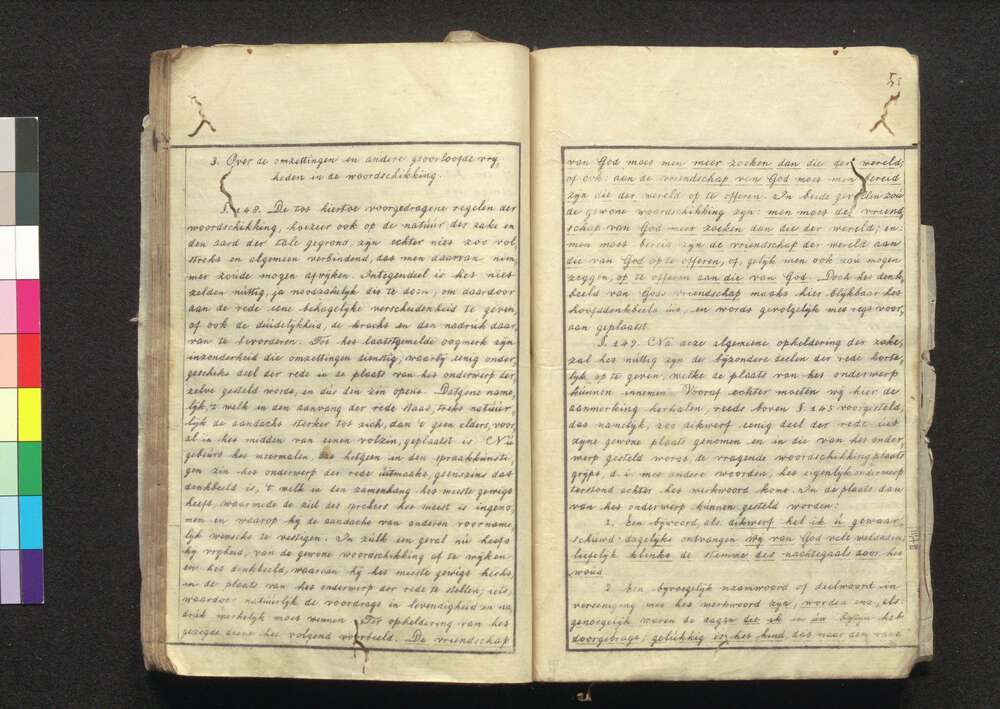 3. Over de omzettingen en andere geoorloofde vrij,
heden in de woordschikking.
§. 148. De tot hiertoe voorgedragene regelen der
woordschikking, hoezeer ook op de natuur des zake en
den aard der tale gegrond, zyn echter niet zoo vol,
strekt en algemeen verbindend, dat men daarvan nim,
mer zoude mogen afwyken. Integendeel is het niet
zelden nuttig, ja noodzakelyk dit te doen, om daardoor
aan de rede eene behagelyke verscheidenheid te geven,
of ook de duidelykheid, de kracht en den nadruk daar,
van te bevorderen. Tot het laatstgemelde oogmerk zyn
inzonderheid die omzettingen dienstig, waarby eenig onder,
geschikt deel der rede in de plaats van het onderwerp der,
zelve gesteld wordt, en dus den zin opent. Datgene name,
lyk, 't welk in den aanvang der rede staat, trekt natuur,
lyk de aandacht sterker tot zich, dan 't geen elders, voor,
al in het midden van eenen volzin, geplaatst is. Nu
gebeurt het meermalen, dat hetgeen in den spraakkunsti,
gen zin het onderwerp der rede uitmaakt, geenszins dat
denkbeeld is, 't welk in den zamenhang het meeste gewigt
heeft, waarmede de ziel des sprekers het meest is ingeno,
men en waarop hy de aandacht van anderen voorname,
lyk wenscht te vestigen. In zulk een geval nu heeft
hy vryheid, van de gewone woordschikking af te wyken
en het denkbeeld, waaraan hy het meeste gewigt hecht,
in de plaats van het onderwerp der rede te stellen; iets,
waardoor natuurlyk de voordragt in levendigheid en na,
druk merkelyk moet winnen. Ter opheldering van het
gezegde diene het volgend voorbeeld. De vriendschap
51
van God moet men meer zoeken dan die der wereld;
of ook: aan de vriendschap van God moet men bereid
zyn die der wereld op te offeren. In beide gevallen zou
de gewone woordschikking zyn: men moet de vriend,
schap van God meer zoeken dan die der wereld; en:
men moet bereid zyn de vriendschap der wereld aan
die van God op te offeren, of, gelyk men ook zou mogen
zeggen, op te offeren aan die van God. Doch het denk,
beeld van Gods vriendschap maakt hier blykbaar het
hoofddenkbeeld uit, en wordt gevolgelyk met regt voor,
aan geplaatst.
§. 149. Na deze algemeene opheldering der zake,
zal het nuttig zyn de byzondere deelen der rede korte,
lyk op te geven, welke de plaats van het onderwerp
kunnen innemen. Vooraf echter moeten wy hier de
aanmerking herhalen, reeds boven §. 145 voorgesteld,
dat namelyk, zoo dikwerf eenig deel der rede uit
zyne gewone plaats genomen en in die van het onder,
werp gesteld wordt, de vragende woordschikking plaats
grypt, d. i. met andere woorden, het eigenlyk onderwerp
terstond achter het werkwoord komt. In de plaats dan
van het onderwerp kunnen gesteld worden:
1., Een bywoord, als: dikwerf heb ik u gewaar,
schuwd; dagelyks ontvangen wy van God vele weldaden;
liefelyk klinkt de stemme des nachtegaals door het
woud.
2. Een byvoegelyk naamwoord of deelwoord in
vereeniging met het werkwoord zyn, worden enz., als:
genoegelyk waren de dagen die ik in uw byzyn heb
doorgebragt; gelukkig is het kind, dat naar den raad